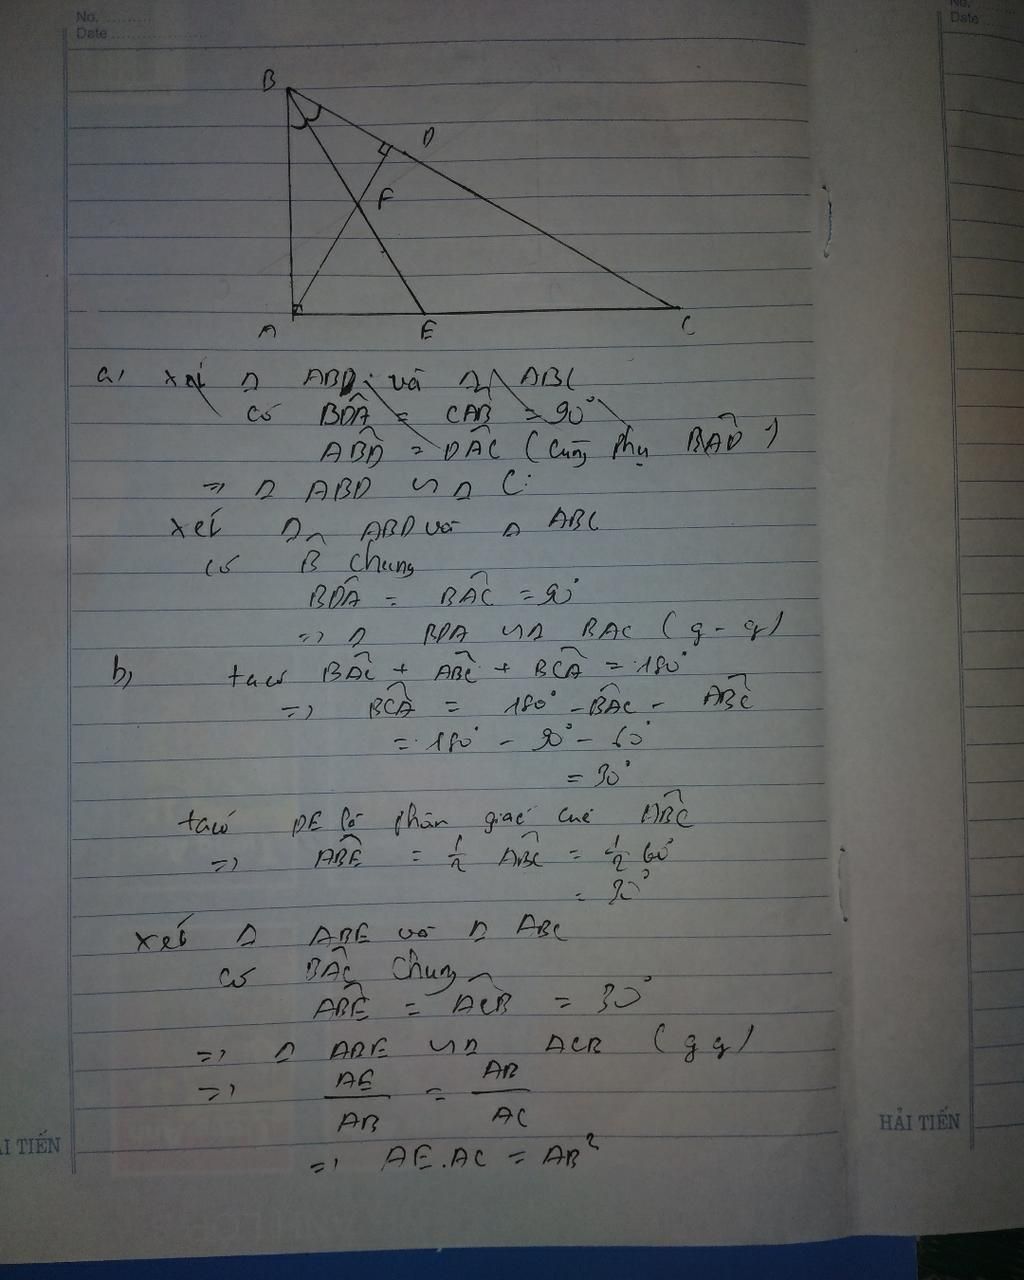 No. ..........
Date ....................
No. ......
Date ......
B
D
F
A
E
C
a, xét Δ ABD và Δ ABC
có BDA = CAB = 90°
ABD = DAC (cùng phụ BAD)
=> Δ ABD ∽ Δ C
Xét Δ ABD và Δ ABC
có B chung
BDA = BAC = 90°
=> Δ BDA ∽ Δ BAC (g-g)
b, ta có BAC + ABC + BCA = 180°
=> BCA = 180° - BAC - ABC
= 180° - 90° - 60°
= 30°
ta có BE là phân giác của ABC
=> ABE = 1/2 ABC = 1/2 60°
= 30°
xét Δ ABE và Δ ABC
có BAC chung
ABE = ACB = 30°
=> Δ ABE ∽ Δ ACB (g g)
=> AE/AB = AB/AC
=> AE.AC = AB²
HẢI TIẾN
ẢI TIẾN